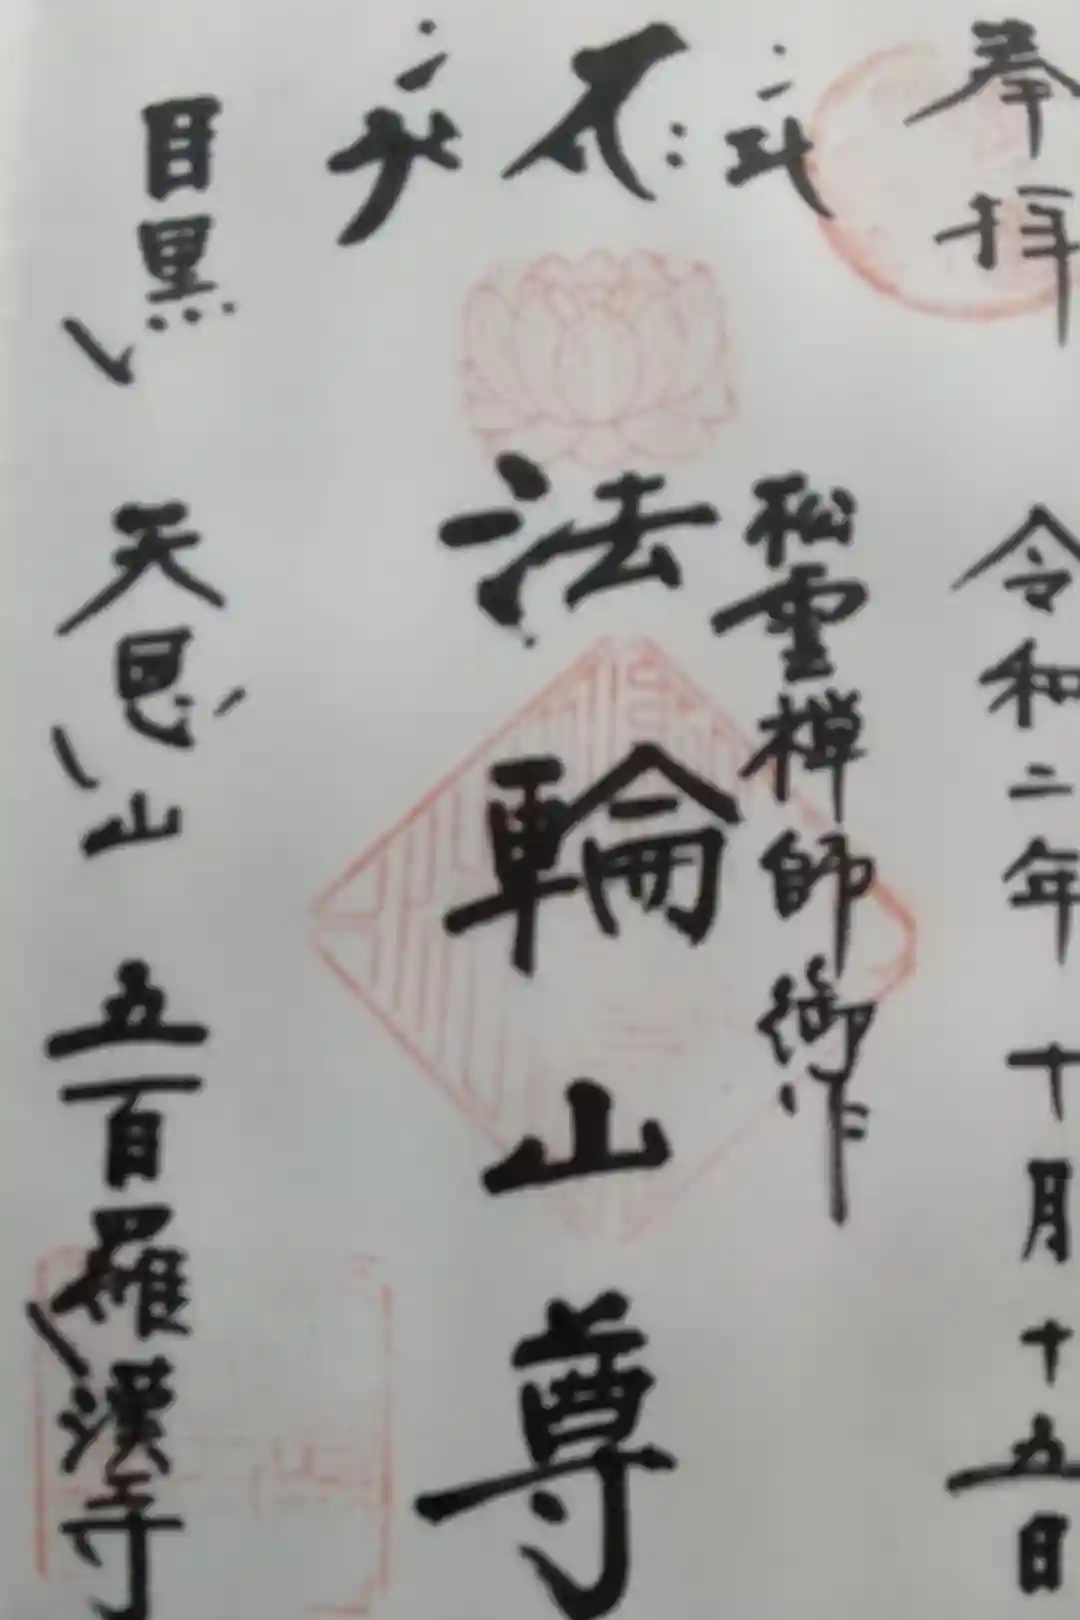 奉拝　令和二年十月十五日
松雲禅師御作
法輪山尊
目黒　天恩山　五百羅漢寺